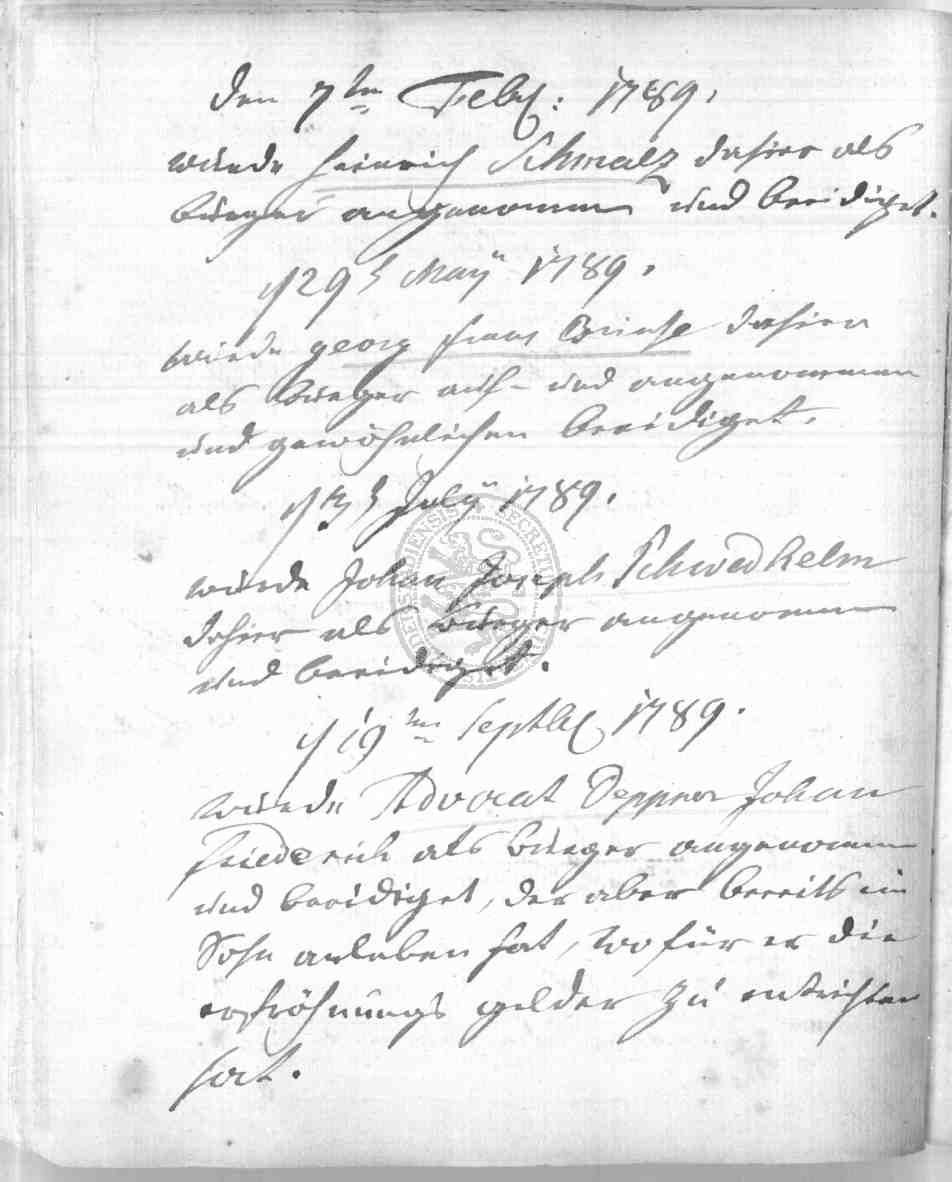 den 7ten Febr: 1789.
wurde Heinrich Schmalz dahier als
burger angenommen und beeidiget.
d 29t May 1789.
wurde georg dahier
als burger auf- und angenommen
und gewöhnlichen beeidiget.
d July 1789.
wurde Johan Joseph Schwedhelm
dahier als burger angenommen
und beeidiget.
d 19ten Septbr 1789.
wurde Advocat Johan
friederich als burger angenommen
und beeidiget, der aber bereits ein
Sohn am leben hat, wofür er die
gelder zu entrichten
hat.